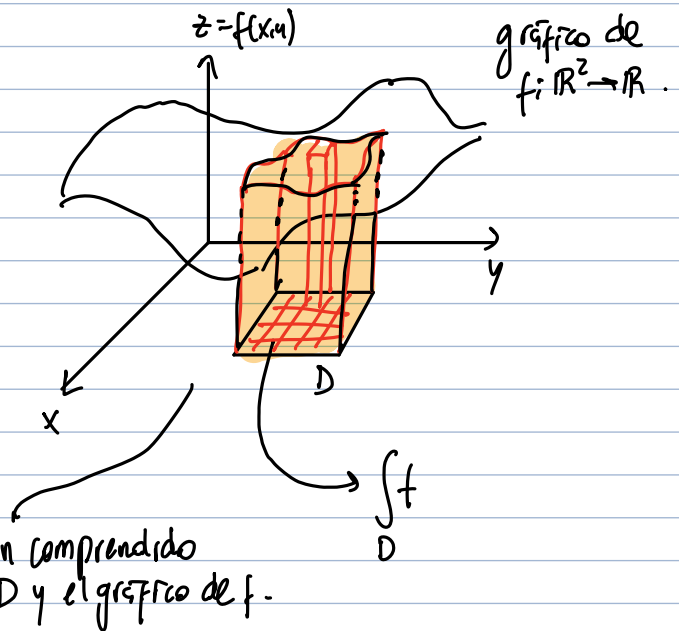 z = f(x,y)
gráfico de
f: ℝ² → ℝ.
y
x
D
∫f
D
n comprendido
D y el gráfico de f.